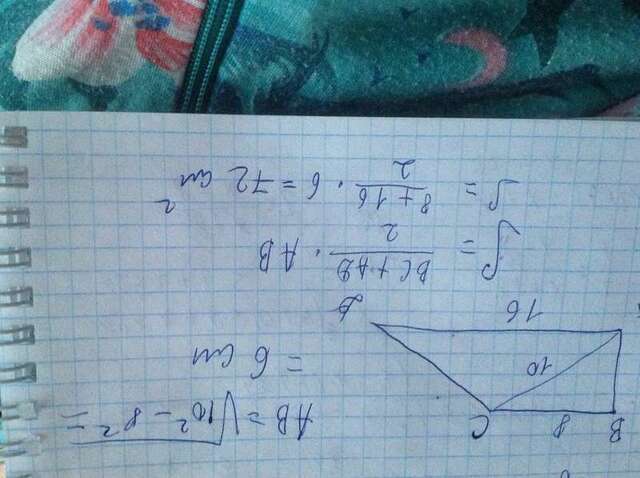 B 8 C
10
16
D
AB = √10² - 8² =
= 6 см
S = BC + AD / 2 · AB
S = 8 + 16 / 2 · 6 = 72 см²